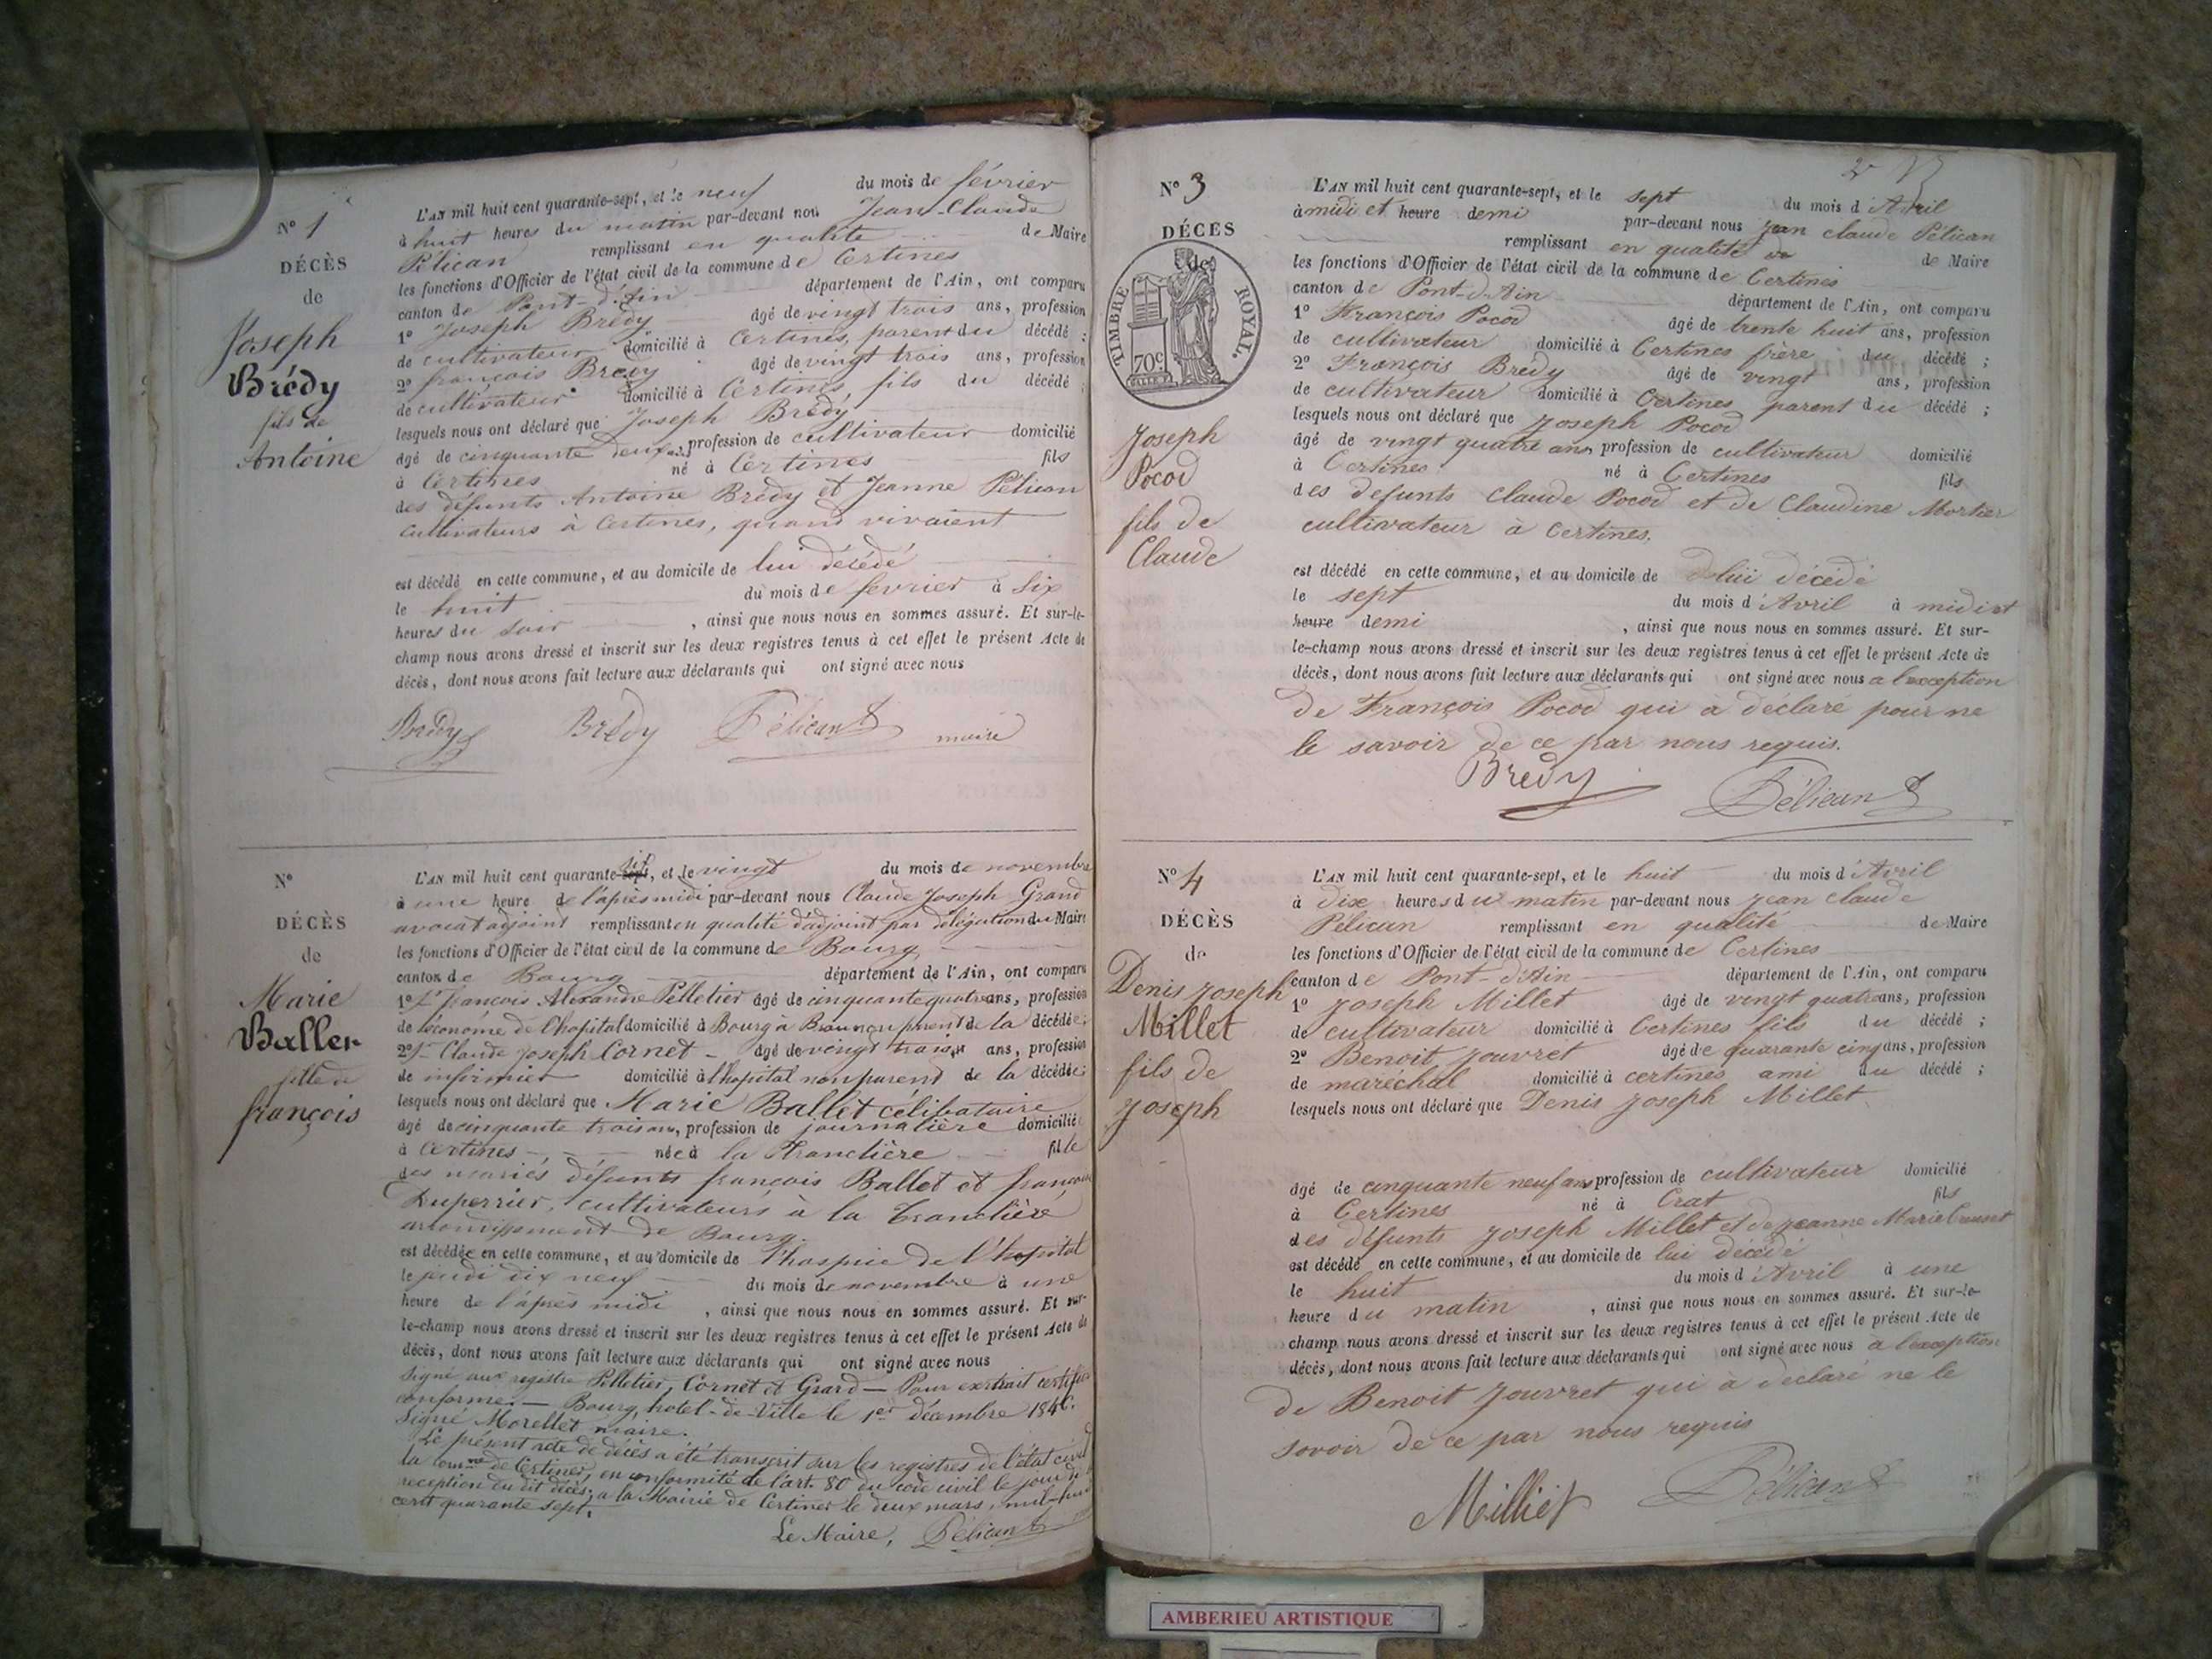 N° 1
DÉCÈS
de
Joseph
Brédy
fils de
Antoine
L'AN mil huit cent quarante-sept, et le neuf du mois de février
à huit heures du matin par-devant nous Jean-Claude
Pélican remplissant en qualité de Maire
les fonctions d'Officier de l'état civil de la commune de Certines
canton de Pont-d'Ain département de l'Ain, ont comparu
1° Joseph Brédy âgé de vingt trois ans, profession
de cultivateur domicilié à Certines, parent du décédé ;
2° françois Brédy âgé de vingt trois ans, profession
de cultivateur domicilié à Certines fils du décédé ;
lesquels nous ont déclaré que Joseph Brédy
âgé de cinquante deux ans, profession de cultivateur domicilié
à Certines né à Certines fils
des défunts Antoine Brédy et Jeanne Pélican
cultivateurs à Certines, quand vivaient
est décédé en cette commune, et au domicile de lui décédé
le huit du mois de février à six
heures du soir , ainsi que nous nous en sommes assuré. Et sur-le-
champ nous avons dressé et inscrit sur les deux registres tenus à cet effet le présent Acte de
décès, dont nous avons fait lecture aux déclarants qui ont signé avec nous
Brédy Brédy Pélican maire
N°
DÉCÈS
de
Marie
Ballet
fille de
françois
L'AN mil huit cent quarante-sept six, et le vingt du mois de novembre
à une heure de l'après midi par-devant nous Claude Joseph Grand
avocat adjoint remplissant en qualité d'adjoint par délégation du Maire
les fonctions d'Officier de l'état civil de la commune de Bourg
canton de Bourg département de l'Ain, ont comparu
1° Sr françois Alexandre Pelletier âgé de cinquante quatre ans, profession
de économe de l'hopital domicilié à Bourg à parent de la décédée ;
2° Sr Claude Joseph Cornet âgé de vingt trois ans, profession
de infirmier domicilié à l'hopital non parent de la décédée ;
lesquels nous ont déclaré que Marie Ballet célibataire
âgé de cinquante trois ans, profession de journalière domiciliée
à Certines née à la Tranclière fille
des mariés défunts françois Ballet et françoise
Duperrier, cultivateurs à la Tranclière
arrondissement de Bourg.
est décédée en cette commune, et au domicile de l'hospice de l'hopital
le jeudi dix neuf du mois de novembre à une
heure de l'après midi , ainsi que nous nous en sommes assuré. Et sur-
le-champ nous avons dressé et inscrit sur les deux registres tenus à cet effet le présent Acte de
décès, dont nous avons fait lecture aux déclarants qui ont signé avec nous
Signé aux registre Pelletier, Cornet et Grard — Pour extrait certifié
conforme. — Bourg, hotel-de-Ville le 1er décembre 1846.
Signé Morellet maire.
Le présent acte de décès a été transcrit sur les registres de l'état civil
la Comne de Certines, en conformité de l'art. 80 du code civil le jour de
reception du dit décès, a la Mairie de Certines le deux mars, mil-huit
cent quarante sept.
Le Maire, Pélican
2e
N° 3
DÉCÈS
de
TIMBRE ROYAL.
70c.
Joseph
Pocod
fils de
Claude
L'AN mil huit cent quarante-sept, et le sept du mois d'Avril
à midi et heure demi par-devant nous jean claude Pélican
remplissant en qualité de de Maire
les fonctions d'Officier de l'état civil de la commune de Certines
canton de Pont-d'Ain département de l'Ain, ont comparu
1° François Pocod âgé de trente huit ans, profession
de cultivateur domicilié à Certines frère du décédé ;
2° François Brédy âgé de vingt ans, profession
de cultivateur domicilié à Certines parent du décédé ;
lesquels nous ont déclaré que Joseph Pocod
âgé de vingt quatre ans, profession de cultivateur domicilié
à Certines né à Certines fils
des défunts Claude Pocod et de Claudine Mortier
cultivateur à Certines.
est décédé en cette commune, et au domicile de lui décédé
le sept du mois d'Avril à midi et
heure demi , ainsi que nous nous en sommes assuré. Et sur-
le-champ nous avons dressé et inscrit sur les deux registres tenus à cet effet le présent Acte de
décès, dont nous avons fait lecture aux déclarants qui ont signé avec nous a l'exception
de François Pocod qui à déclaré pour ne
le savoir de ce par nous requis.
Brédy Pélican
N° 4
DÉCÈS
de
Denis joseph
Millet
fils de
joseph
L'AN mil huit cent quarante-sept, et le huit du mois d'Avril
à dix heures du matin par-devant nous jean claude
Pélican remplissant en qualité de Maire
les fonctions d'Officier de l'état civil de la commune de Certines
canton de Pont-d'Ain département de l'Ain, ont comparu
1° joseph Millet âgé de vingt quatre ans, profession
de cultivateur domicilié à Certines fils du décédé ;
2° Benoit jouvret âgé de quarante cinq ans, profession
de maréchal domicilié à certines ami du décédé ;
lesquels nous ont déclaré que Denis joseph Millet
âgé de cinquante neuf ans profession de cultivateur domicilié
à Certines né à Crat fils
des défunts joseph Millet et de jeanne Marie
est décédé en cette commune, et au domicile de lui décédé
le huit du mois d'Avril à une
heure du matin , ainsi que nous nous en sommes assuré. Et sur-le-
champ nous avons dressé et inscrit sur les deux registres tenus à cet effet le présent Acte de
décès, dont nous avons fait lecture aux déclarants qui ont signé avec nous a l'exception
de Benoit jouvret qui à déclaré ne le
savoir de ce par nous requis
Milliet Pélican
AMBERIEU ARTISTIQUE